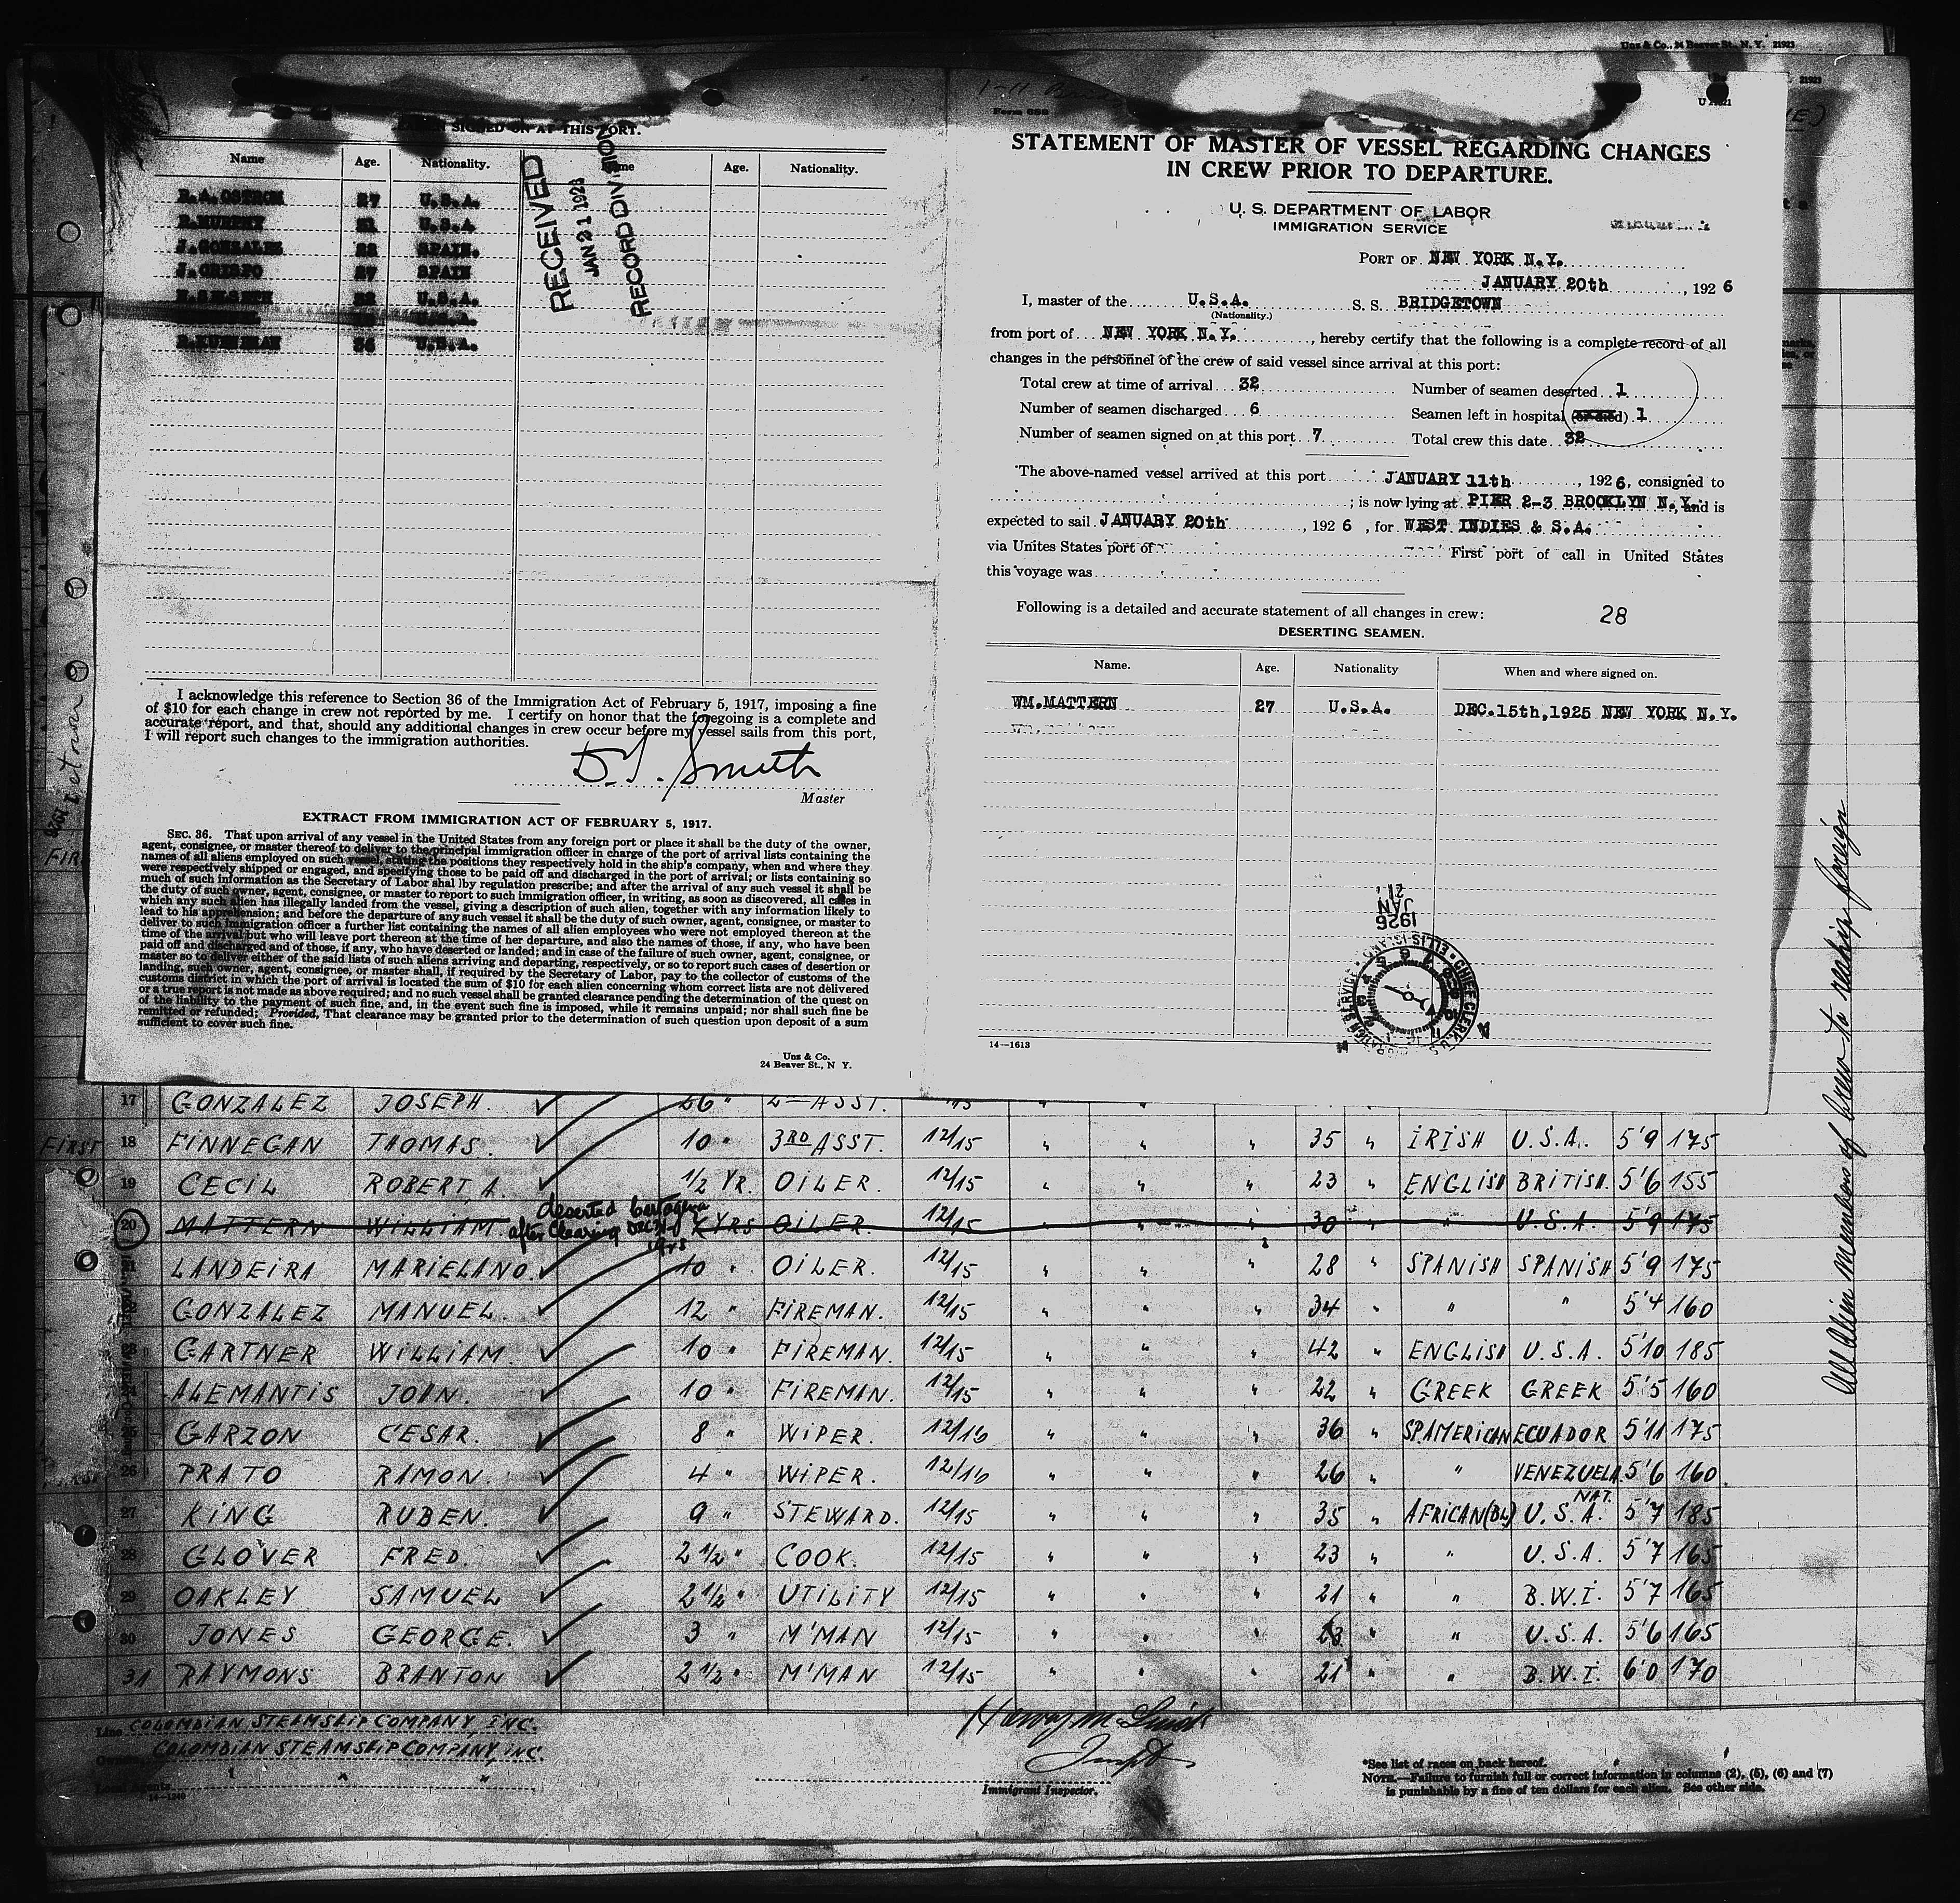 Unz & Co., 24 Beaver St., N. Y. 21923
21923
SIGNED ON AT THIS PORT.
Name Age. Nationality. Name Age. Nationality.
R.A. OSTROM 27 U.S.A.
R.MURPHY 21 U.S.A
J.GONZALES 22 SPAIN.
J.CRISPO 27 SPAIN
U.S.A.
U.S.A.
36 U.S.A.
RECEIVED
JAN 21 1926
RECORD DIVISION
I acknowledge this reference to Section 36 of the Immigration Act of February 5, 1917, imposing a fine
of $10 for each change in crew not reported by me. I certify on honor that the foregoing is a complete and
accurate report, and that, should any additional changes in crew occur before my vessel sails from this port,
I will report such changes to the immigration authorities.
D.T. Smith
Master
EXTRACT FROM IMMIGRATION ACT OF FEBRUARY 5, 1917.
SEC. 36. That upon arrival of any vessel in the United States from any foreign port or place it shall be the duty of the owner,
agent, consignee, or master thereof to deliver to the principal immigration officer in charge of the port of arrival lists containing the
names of all aliens employed on such vessel, stating the positions they respectively hold in the ship's company, when and where they
were respectively shipped or engaged, and specifying those to be paid off and discharged in the port of arrival; or lists containing so
much of such information as the Secretary of Labor shal lby regulation prescribe; and after the arrival of any such vessel it shall be
the duty of such owner, agent, consignee, or master to report to such immigration officer, in writing, as soon as discovered, all cases in
which any such alien has illegally landed from the vessel, giving a description of such alien, together with any information likely to
lead to his apprehension; and before the departure of any such vessel it shall be the duty of such owner, agent, consignee, or master to
deliver to such immigration officer a further list containing the names of all alien employees who were not employed thereon at the
time of the arrival but who will leave port thereon at the time of her departure, and also the names of those, if any, who have been
paid off and discharged and of those, if any, who have deserted or landed; and in case of the failure of such owner, agent, consignee, or
master so to deliver either of the said lists of such aliens arriving and departing, respectively, or so to report such cases of desertion or
landing, such owner, agent, consignee, or master shall, if required by the Secretary of Labor, pay to the collector of customs of the
customs district in which the port of arrival is located the sum of $10 for each alien concerning whom correct lists are not delivered
or a true report is not made as above required; and no such vessel shall be granted clearance pending the determination of the quest on
of the liability to the payment of such fine, and, in the event such fine is imposed, while it remains unpaid; nor shall such fine be
remitted or refunded; Provided, That clearance may be granted prior to the determination of such question upon deposit of a sum
sufficient to cover such fine.
Unz & Co.
24 Beaver St., N Y.
Form 689
STATEMENT OF MASTER OF VESSEL REGARDING CHANGES
IN CREW PRIOR TO DEPARTURE.
U. S. DEPARTMENT OF LABOR
IMMIGRATION SERVICE
PORT OF NEW YORK N.Y.
JANUARY 20th, 1926
I, master of the U.S.A. S. S. BRIDGETOWN
(Nationality.)
from port of NEW YORK N.Y., hereby certify that the following is a complete record of all
changes in the personnel of the crew of said vessel since arrival at this port:
Total crew at time of arrival 32 Number of seamen deserted 1
Number of seamen discharged 6 Seamen left in hospital (or died) 1
Number of seamen signed on at this port 7 Total crew this date 32
The above-named vessel arrived at this port JANUARY 11th, 1926, consigned to
; is now lying at PIER 2-3 BROOKLYN N.Y., and is
expected to sail JANUARY 20th, 1926, for WEST INDIES & S.A.
via Unites States port of First port of call in United States
this voyage was
Following is a detailed and accurate statement of all changes in crew: 28
DESERTING SEAMEN.
Name. Age. Nationality When and where signed on.
WM.MATTERN 27 U.S.A. DEC.15th,1925 NEW YORK N.Y.
JAN 21 1926
CHIEF CLERK, U.S.
ELLIS IS.
14—1613
All Alien Members of Crew to reship foreign
17 GONZALEZ JOSEPH. 26 " 2nd ASST. " "
FIRST 18 FINNEGAN THOMAS. 10 " 3RD ASST. 12/15 " " " 35 " IRISH U.S.A. 5'9 175
19 CECIL ROBERT, A. 1/2 YR. OILER. 12/15 " " " 23 " ENGLISH BRITISH. 5'6 155
deserted Cartagena
20 MATTERN WILLIAM. after clearing DEC 31 YRS OILER. 12/15 " " " 30 " " U.S.A. 5'9 175
21 LANDEIRA MARIELANO. 10 " OILER. 12/15 " " " 28 " SPANISH SPANISH 5'9 175
22 GONZALEZ MANUEL. 12 " FIREMAN. 12/15 " " " 34 " " " 5'4 160
23 GARTNER WILLIAM. 10 " FIREMAN. 12/15 " " " 42 " ENGLISH U.S.A. 5'10 185
24 ALEMANTIS JOHN. 10 " FIREMAN. 12/15 " " " 22 " GREEK GREEK 5'5 160
25 GARZON CESAR. 8 " WIPER. 12/16 " " " 36 " SPAMERICAN ECUADOR 5'11 175
26 PRATO RAMON. 4 " WIPER. 12/16 " " " 26 " " VENEZUELA 5'6 160
27 KING RUBEN. 9 " STEWARD. 12/15 " " " 35 " AFRICAN(BL) U.S.A. NAT. 5'7 185
28 GLOVER FRED. 2 1/2 " COOK. 12/15 " " " 23 " " U.S.A. 5'7 165
29 OAKLEY SAMUEL 2 1/2 " UTILITY 12/15 " " " 21 " " B.W.I. 5'7 165
30 JONES GEORGE. 3 " M'MAN 12/15 " " " 23 " " U.S.A. 5'6 165
31 RAYMONS BRANTON 2 1/2 " M'MAN 12/15 " " " 21 " " B.W.I. 6'0 170
Line COLOMBIAN STEAMSHIP COMPANY, INC.
Owners COLOMBIAN STEAMSHIP COMPANY, INC.
Local Agents " " "
14—1240
Immigrant Inspector.
*See list of races on back hereof.
NOTE.—Failure to furnish full or correct information in columns (2), (5), (6) and (7)
is punishable by a fine of ten dollars for each alien. See other side.